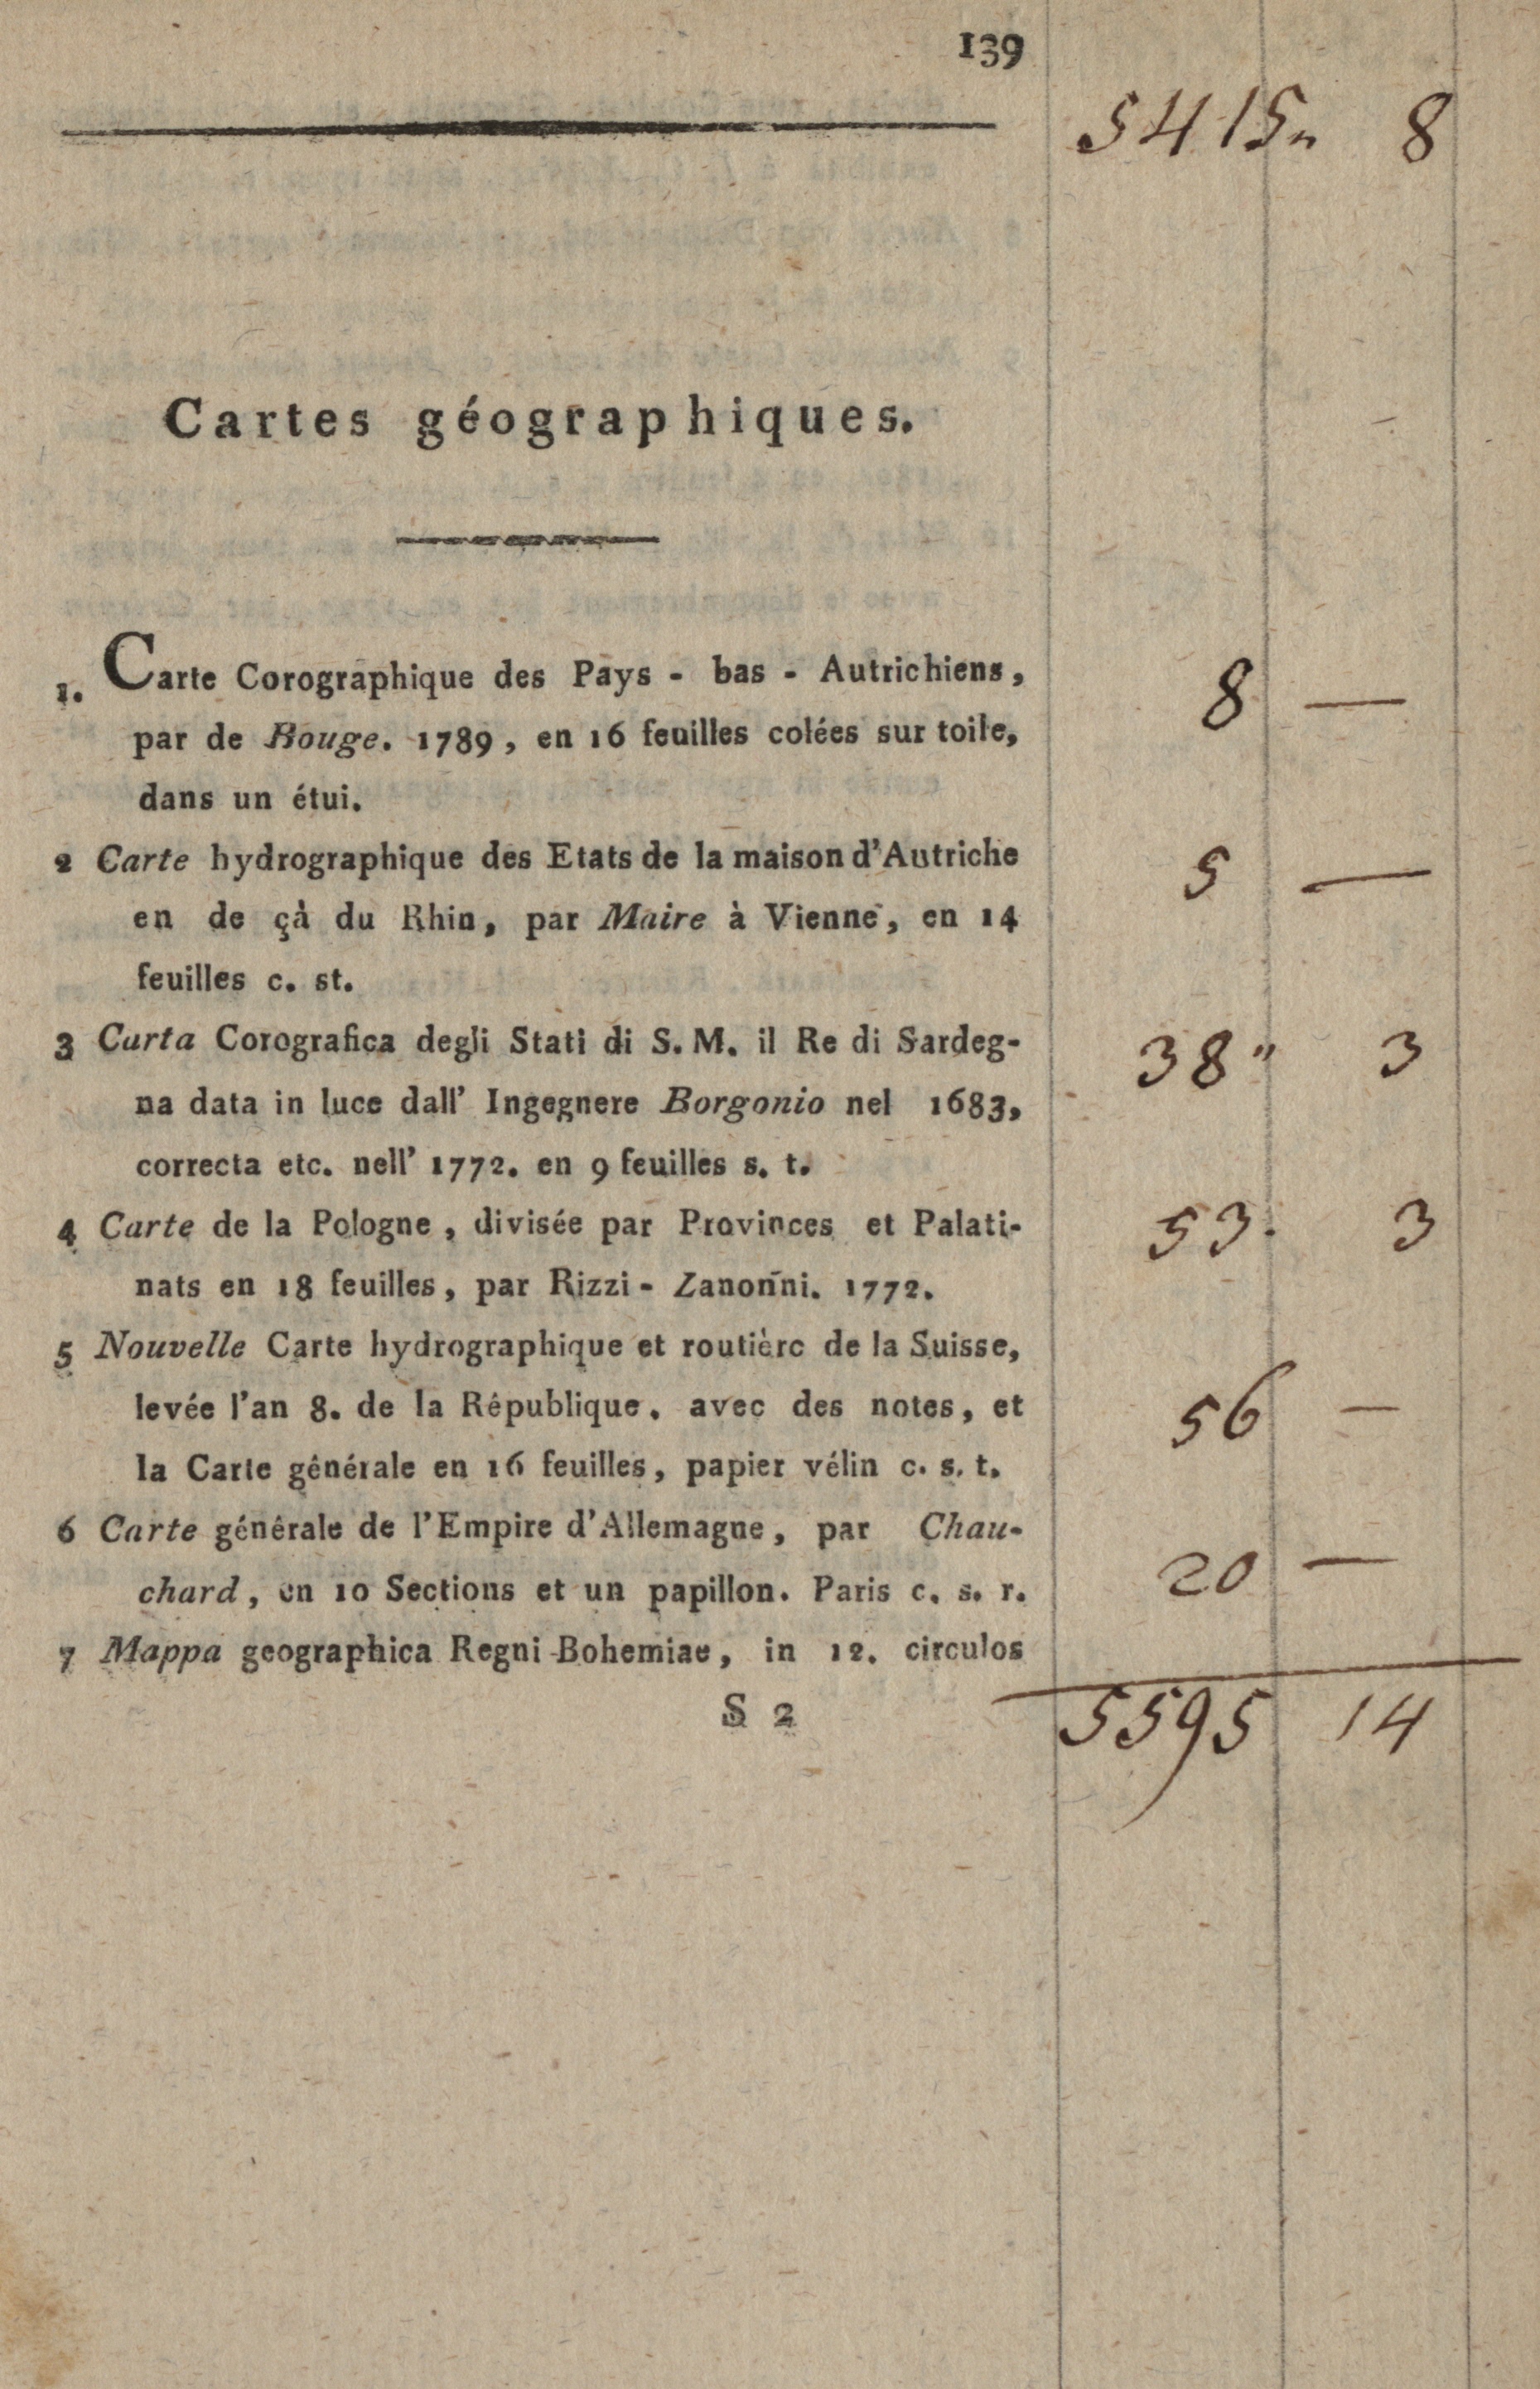 139
5415„ 8
Cartes géographiques.
1. Carte Corographique des Pays - bas - Autrichiens, 8 —
par de Bouge. 1789, en 16 feuilles colées sur toile,
dans un étui.
2 Carte hydrographique des Etats de la maison d'Autriche 5 —
en de çà du Rhin, par Maire à Vienne, en 14
feuilles c. st.
3 Carta Corografica degli Stati di S. M. il Re di Sardeg- 38„ 3
na data in luce dall' Ingegnere Borgonio nel 1683,
correcta etc. nell' 1772. en 9 feuilles s. t.
4 Carte de la Pologne, divisée par Provinces et Palati- 53. 3
nats en 18 feuilles, par Rizzi - Zanonni. 1772.
5 Nouvelle Carte hydrographique et routière de la Suisse,
levée l'an 8. de la République. avec des notes, et 56 —
la Carte générale en 16 feuilles, papier vélin c. s. t.
6 Carte générale de l'Empire d'Allemagne, par Chau-
chard, en 10 Sections et un papillon. Paris c. s. r. 20 —
7 Mappa geographica Regni Bohemiae, in 12. circulos
S 2 5595 14